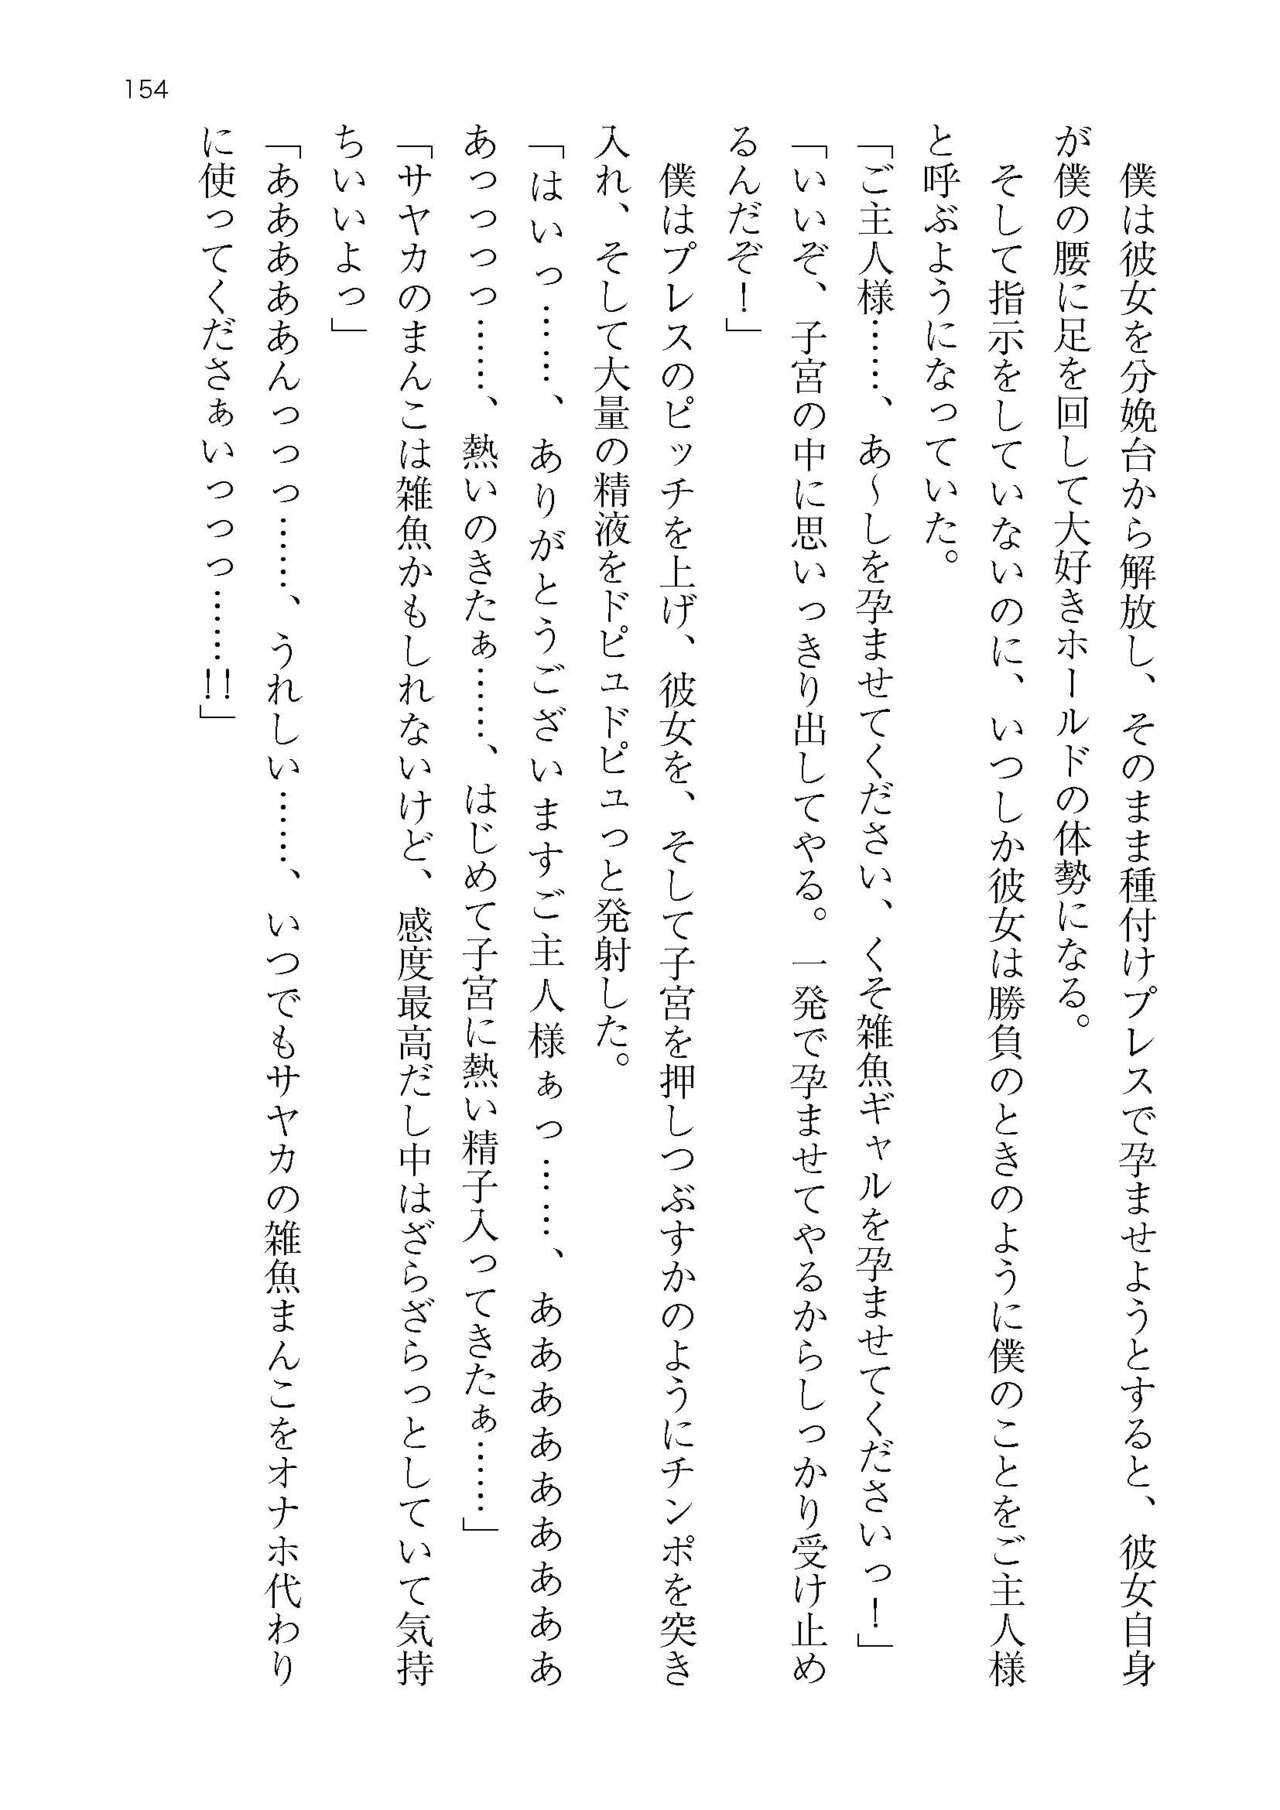 154
僕は彼女を分娩台から解放し、そのまま種付けプレスで孕ませようとすると、彼女自身
が僕の腰に足を回して大好きホールドの体勢になる。
そして指示をしていないのに、いつしか彼女は勝負のときのように僕のことをご主人様
と呼ぶようになっていた。
「ご主人様……、あ～しを孕ませてください、くそ雑魚ギャルを孕ませてくださいっ！」
「いいぞ、子宮の中に思いっきり出してやる。一発で孕ませてやるからしっかり受け止め
るんだぞ！」
僕はプレスのピッチを上げ、彼女を、そして子宮を押しつぶすかのようにチンポを突き
入れ、そして大量の精液をドピュドピュっと発射した。
「はいっ……、ありがとうございますご主人様ぁっ……、ああああああああああ
あっっっっ……、熱いのきたぁ……、はじめて子宮に熱い精子入ってきたぁ……」
「サヤカのまんこは雑魚かもしれないけど、感度最高だし中はざらざらっとしていて気持
ちいいよっ」
「ああああああんっっっ……、うれしい……、いつでもサヤカの雑魚まんこをオナホ代わり
に使ってくださぁいっっっ……!!」